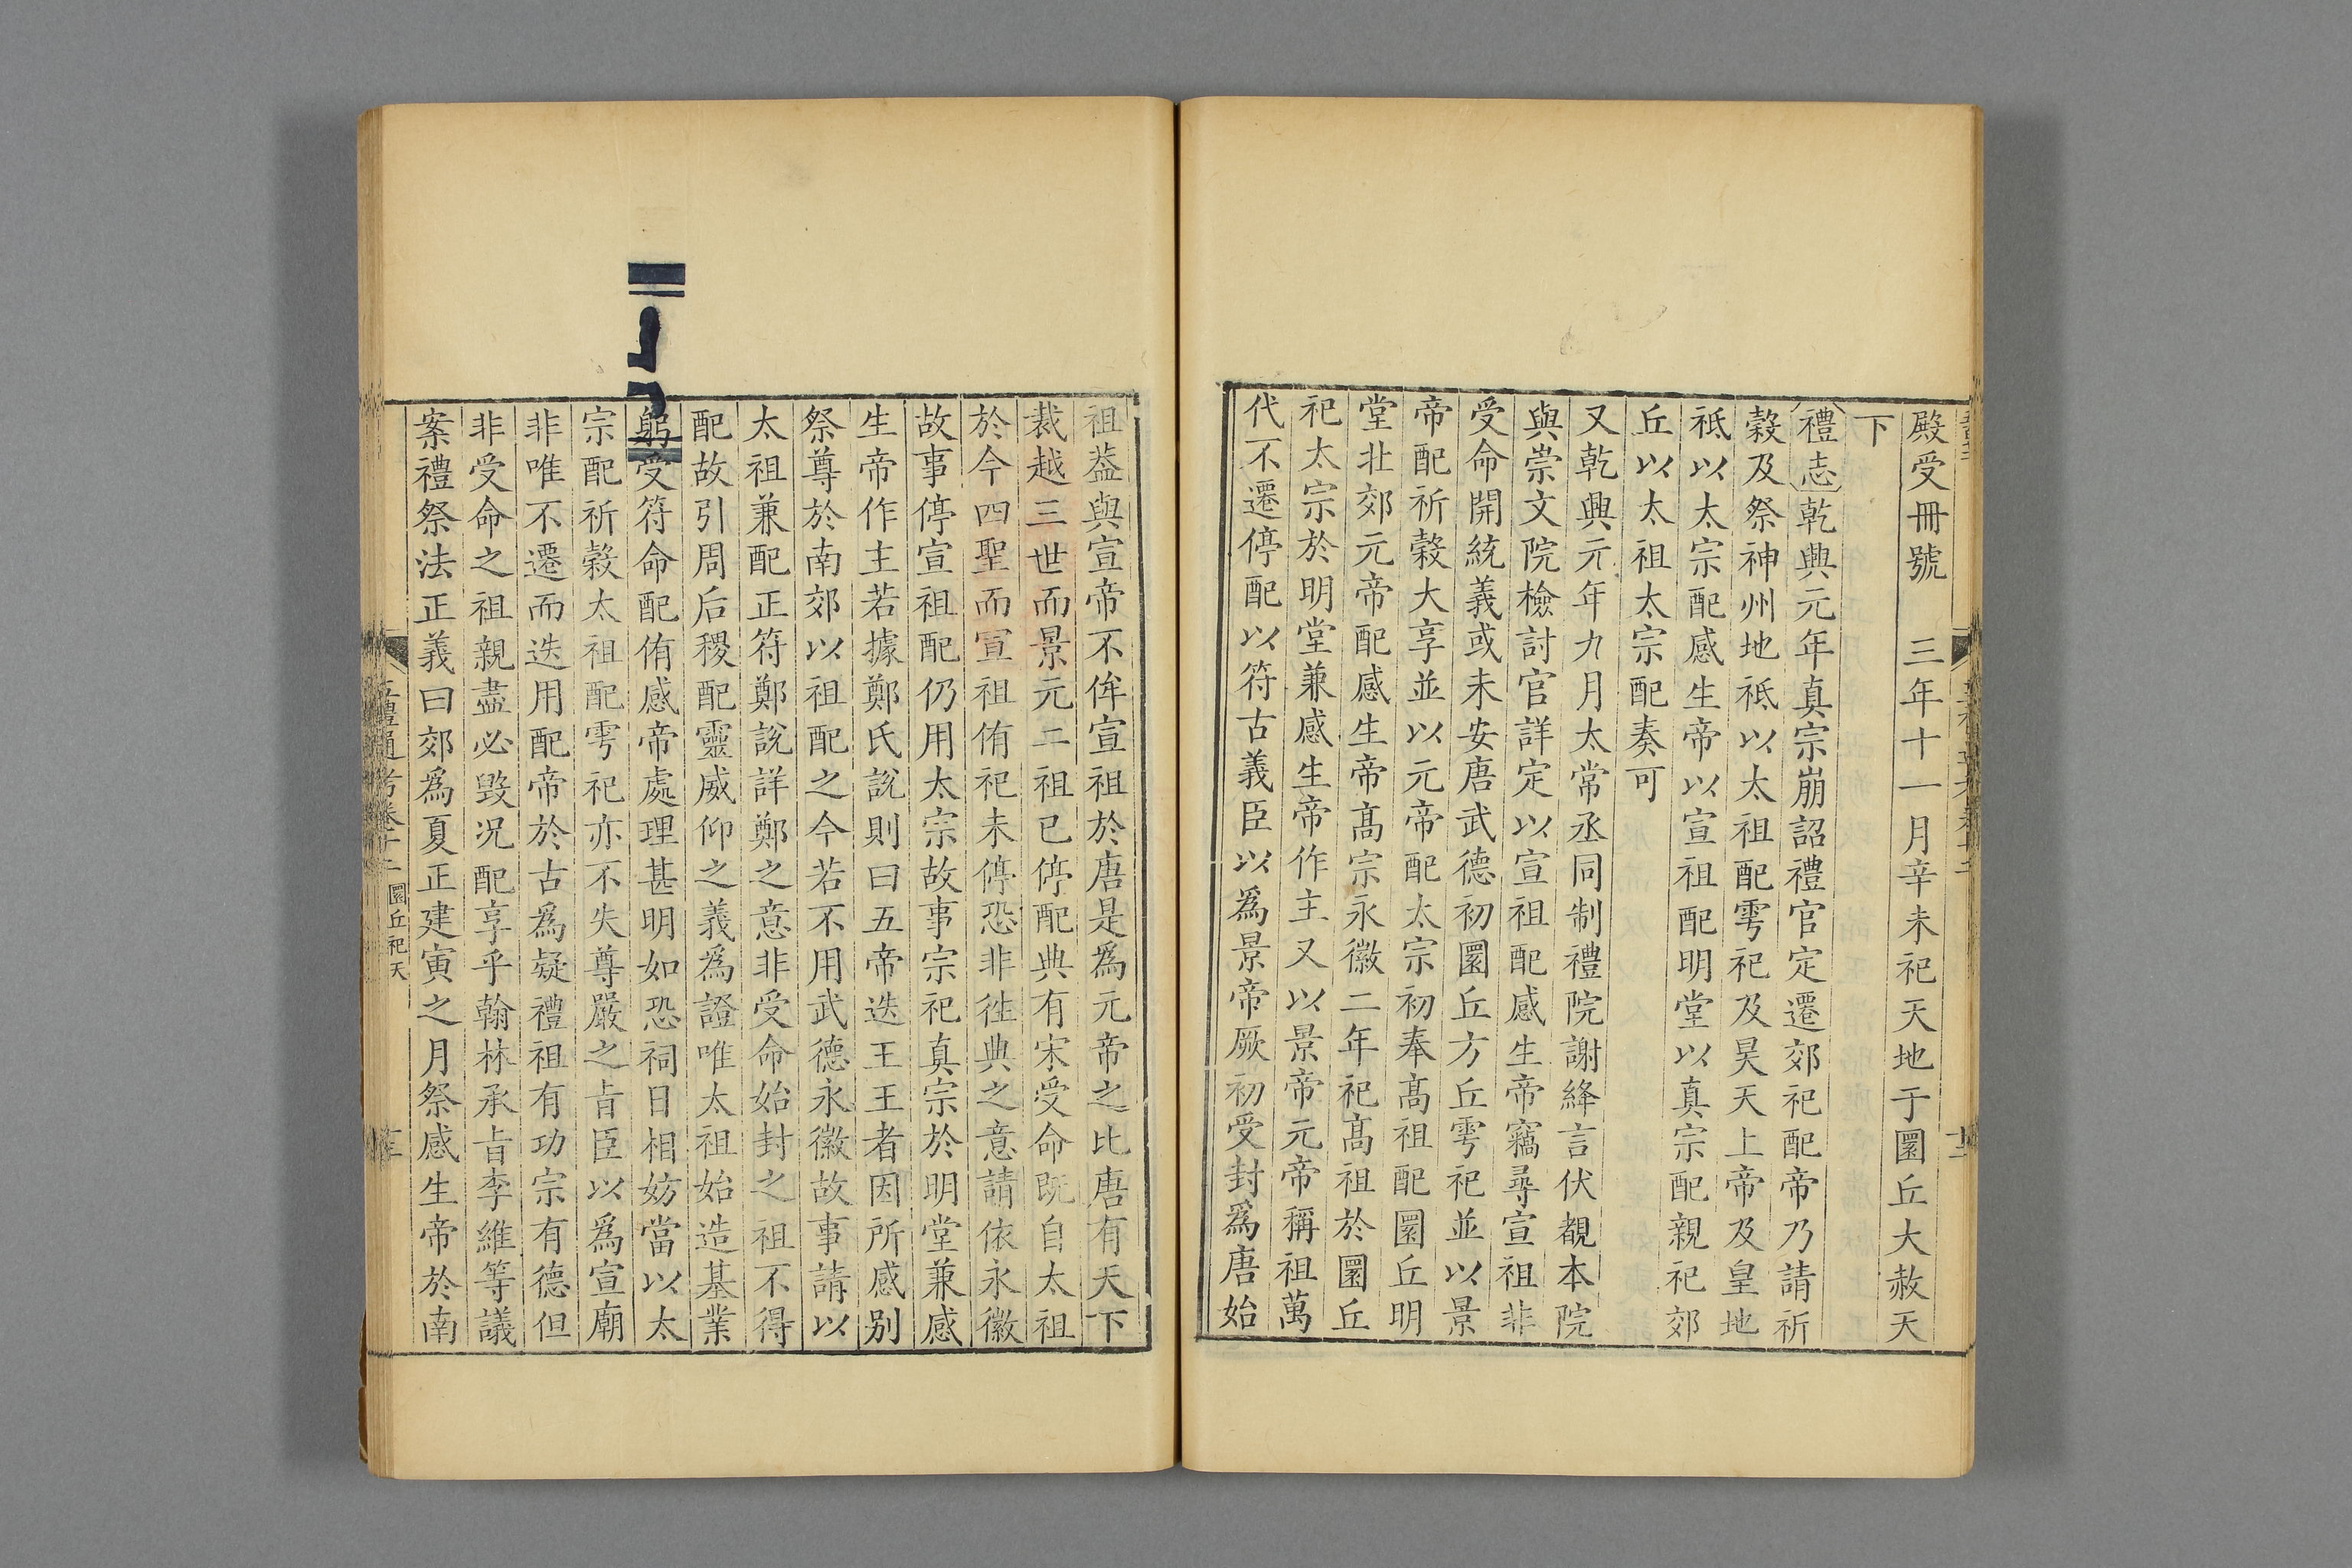 殿受冊號　三年十一月辛未祀天地于圜丘大赦天
下
禮志乾興元年真宗崩詔禮官定遷郊祀配帝乃請祈
穀及祭神州地祇以太祖配雩祀及昊天上帝及皇地
祇以太宗配感生帝以宣祖配明堂以真宗配親祀郊
丘以太祖太宗配奏可
又乾興元年九月太常丞同制禮院謝絳言伏覩本院
與崇文院檢討官詳定以宣祖配感生帝竊尋宣祖非
受命開統義或未安唐武德初圜丘方丘雩祀並以景
帝配祈穀大享並以元帝配太宗初奉髙祖配圜丘明
堂北郊元帝配感生帝髙宗永徽二年祀髙祖於圜丘
祀太宗於明堂兼感生帝作主又以景帝元帝稱祖萬
代不遷停配以符古義臣以為景帝厥初受封爲唐始
祖葢與宣帝不侔宣祖於唐是爲元帝之比唐有天下
裁越三世而景元二祖已停配典有宋受命既自太祖
於今四聖而宣祖侑祀未停恐非徃典之意請依永徽
故事停宣祖配仍用太宗故事宗祀真宗於明堂兼感
生帝作主若據鄭氏說則曰五帝迭王王者因所感別
祭尊於南郊以祖配之今若不用武德永徽故事請以
太祖兼配正符鄭說詳鄭之意非受命始封之祖不得
配故引周后稷配靈威仰之義爲證唯太祖始造基業
躬受符命配侑感帝處理甚明如恐祠日相妨當以太
宗配祈穀太祖配雩祀亦不失尊嚴之㫖臣以爲宣廟
非唯不遷而迭用配帝於古爲疑禮祖有功宗有德但
非受命之祖親盡必毀况配享乎翰林承㫖李維等議
案禮祭法正義曰郊爲夏正建寅之月祭感生帝於南
五禮通考卷十二　圜丘祀天